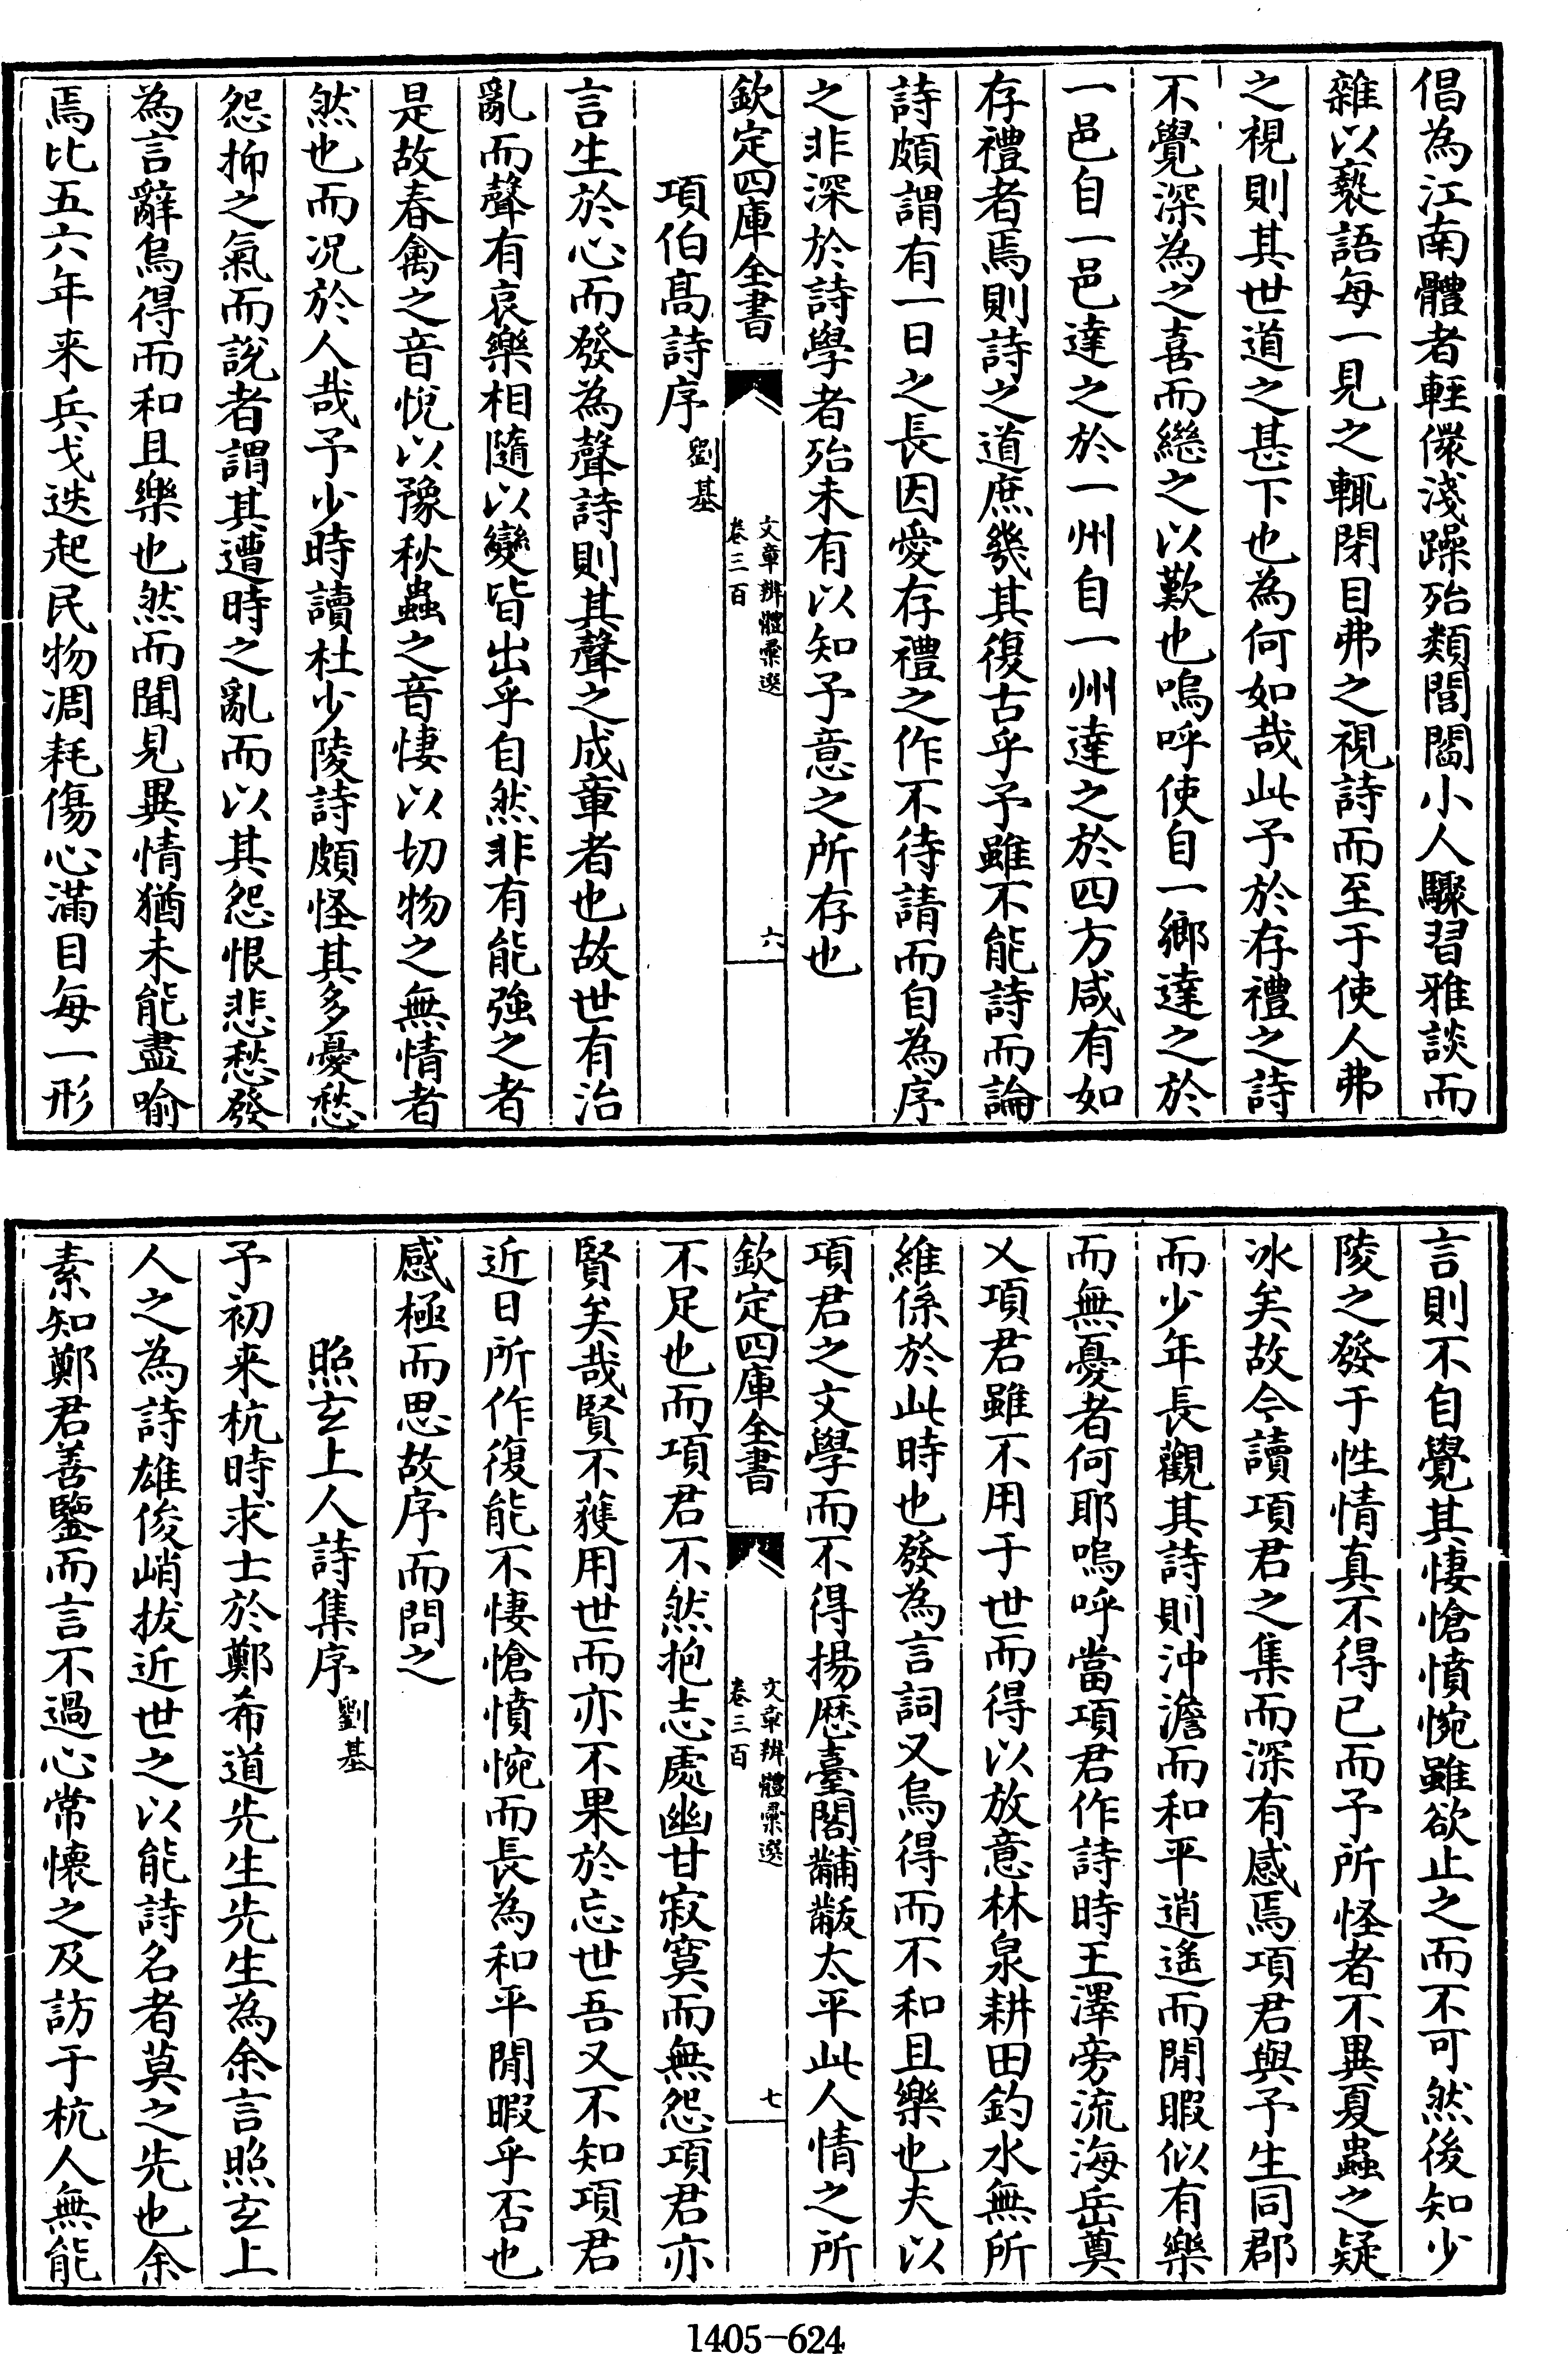 倡為江南體者輕儇淺躁殆類閭閻小人驟習雅談而
雜以褻語每一見之輒閉目弗之視詩而至于使人弗
之視則其世道之甚下也為何如哉此予於存禮之詩
不覺深為之喜而繼之以歎也嗚呼使自一鄉達之於
一邑自一邑達之於一州自一州達之於四方咸有如
存禮者焉則詩之道庶幾其復古乎予雖不能詩而論
詩頗謂有一日之長因愛存禮之作不待請而自為序
之非深於詩學者殆未有以知予意之所存也
欽定四庫全書
文章辨體彙選
卷三百
六
項伯高詩序 劉基
言生於心而發為聲詩則其聲之成章者也故世有治
亂而聲有哀樂相隨以變皆出乎自然非有能強之者
是故春禽之音悅以豫秋蟲之音悽以切物之無情者
然也而况於人哉予少時讀杜少陵詩頗怪其多憂愁
怨抑之氣而說者謂其遭時之亂而以其怨恨悲愁發
為言辭烏得而和且樂也然而聞見異情猶未能盡喻
焉比五六年来兵戈迭起民物凋耗傷心滿目每一形
言則不自覺其悽愴憤惋雖欲止之而不可然後知少
陵之發于性情真不得已而予所怪者不異夏蟲之疑
冰矣故今讀項君之集而深有感焉項君與予生同郡
而少年長觀其詩則沖澹而和平逍遙而閒暇似有樂
而無憂者何耶嗚呼當項君作詩時王澤旁流海岳奠
乂項君雖不用于世而得以放意林泉耕田釣水無所
維係於此時也發為言詞又烏得而不和且樂也夫以
項君之文學而不得揚歷臺閣黼黻太平此人情之所
欽定四庫全書
文章辨體彙選
卷三百
七
不足也而項君不然抱志處幽甘寂寞而無怨項君亦
賢矣哉賢不獲用世而亦不果於忘世吾又不知項君
近日所作復能不悽愴憤惋而長為和平閒暇乎否也
感極而思故序而問之
照玄上人詩集序 劉基
予初来杭時求士於鄭希道先生先生為余言照玄上
人之為詩雄俊峭拔近世之以能詩名者莫之先也余
素知鄭君善鑒而言不過心常懷之及訪于杭人無能
1405-624